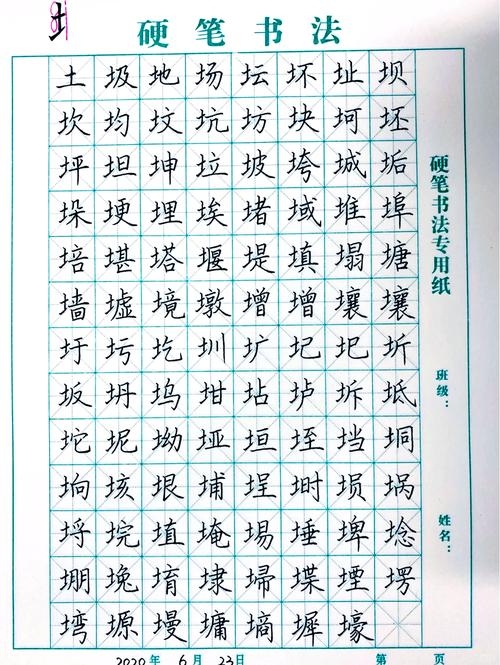 硬笔书法
土圾地场坛坏址坝
坎均坟坑坊块坷坯
坪坦坤垃坡垮城垢
垛埂埋埃堵域堆埠
培堪塔堰堤填塌塘
墙墟境墩增增壤壤
圩圬圪圳圹圮圯圻
坂坍坞坩坫垆坼坻
坨坭坳垭垣垤垱垌
垧垓垠埔埕埘埙埚
埒垸埴埯埸埵埤埝
堋堍堉埭埽堞堙塄
塆塬墁墉墒墀壕
2020年6月23日 第 页
硬笔书法专用纸
班级：
姓名：